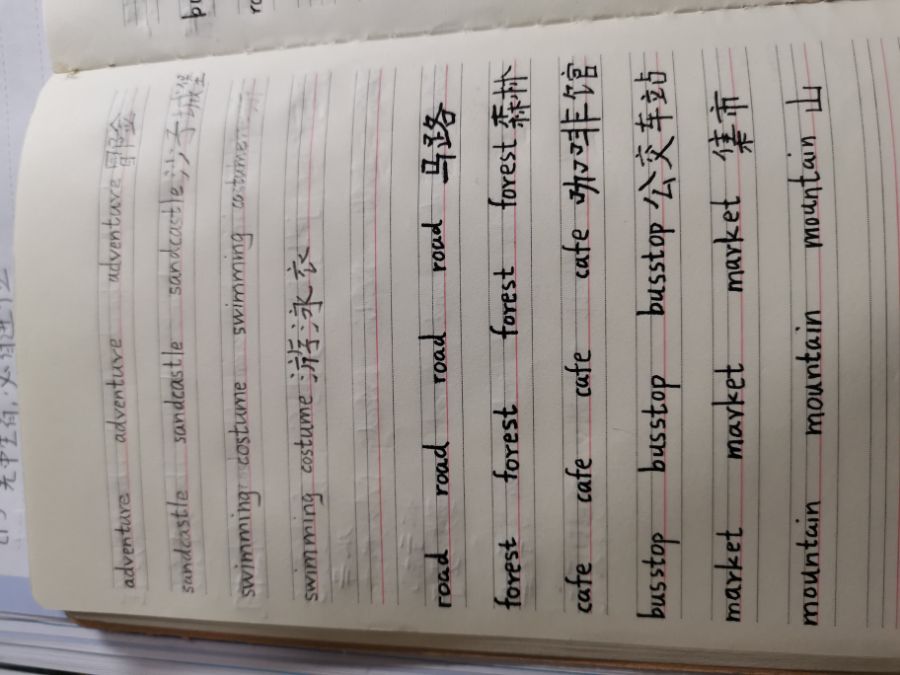 adventure adventure adventure 冒险
sandcastle sandcastle sandcastle 沙子城堡
swimming costume swimming costume
swimming costume 游泳衣
road road road road 马路
forest forest forest forest 森林
cafe cafe cafe cafe 咖啡馆
busstop busstop busstop 公交车站
market market market 集市
mountain mountain mountain 山